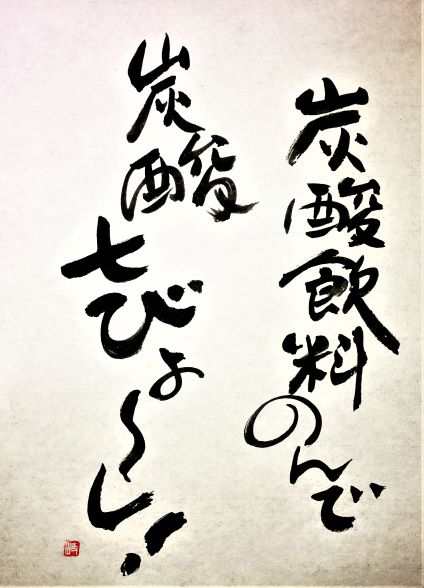 炭酸飲料のんで
炭酸七びょ〜し!